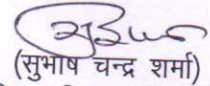 (सुभाष चन्द्र शर्मा)